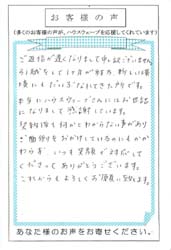 お客様の声
(多くのお客様の声が、ハウスウェーブを応援してくれています)
ご返信が遅くなりまして申し訳ございません
引越をして1ヶ月が経ち、新しい環
境にもだいぶなれてきた所です。
本当にハウスウェーブさんにはお世話
になりまして感謝しています。
契約後も何かとわからない事があり
ご面倒をおかけしているのにもかか
わらず、いつも笑顔で対応して
くださってありがとうございます。
これからもよろしくお願い致します。
あなた様のお声をお寄せください。